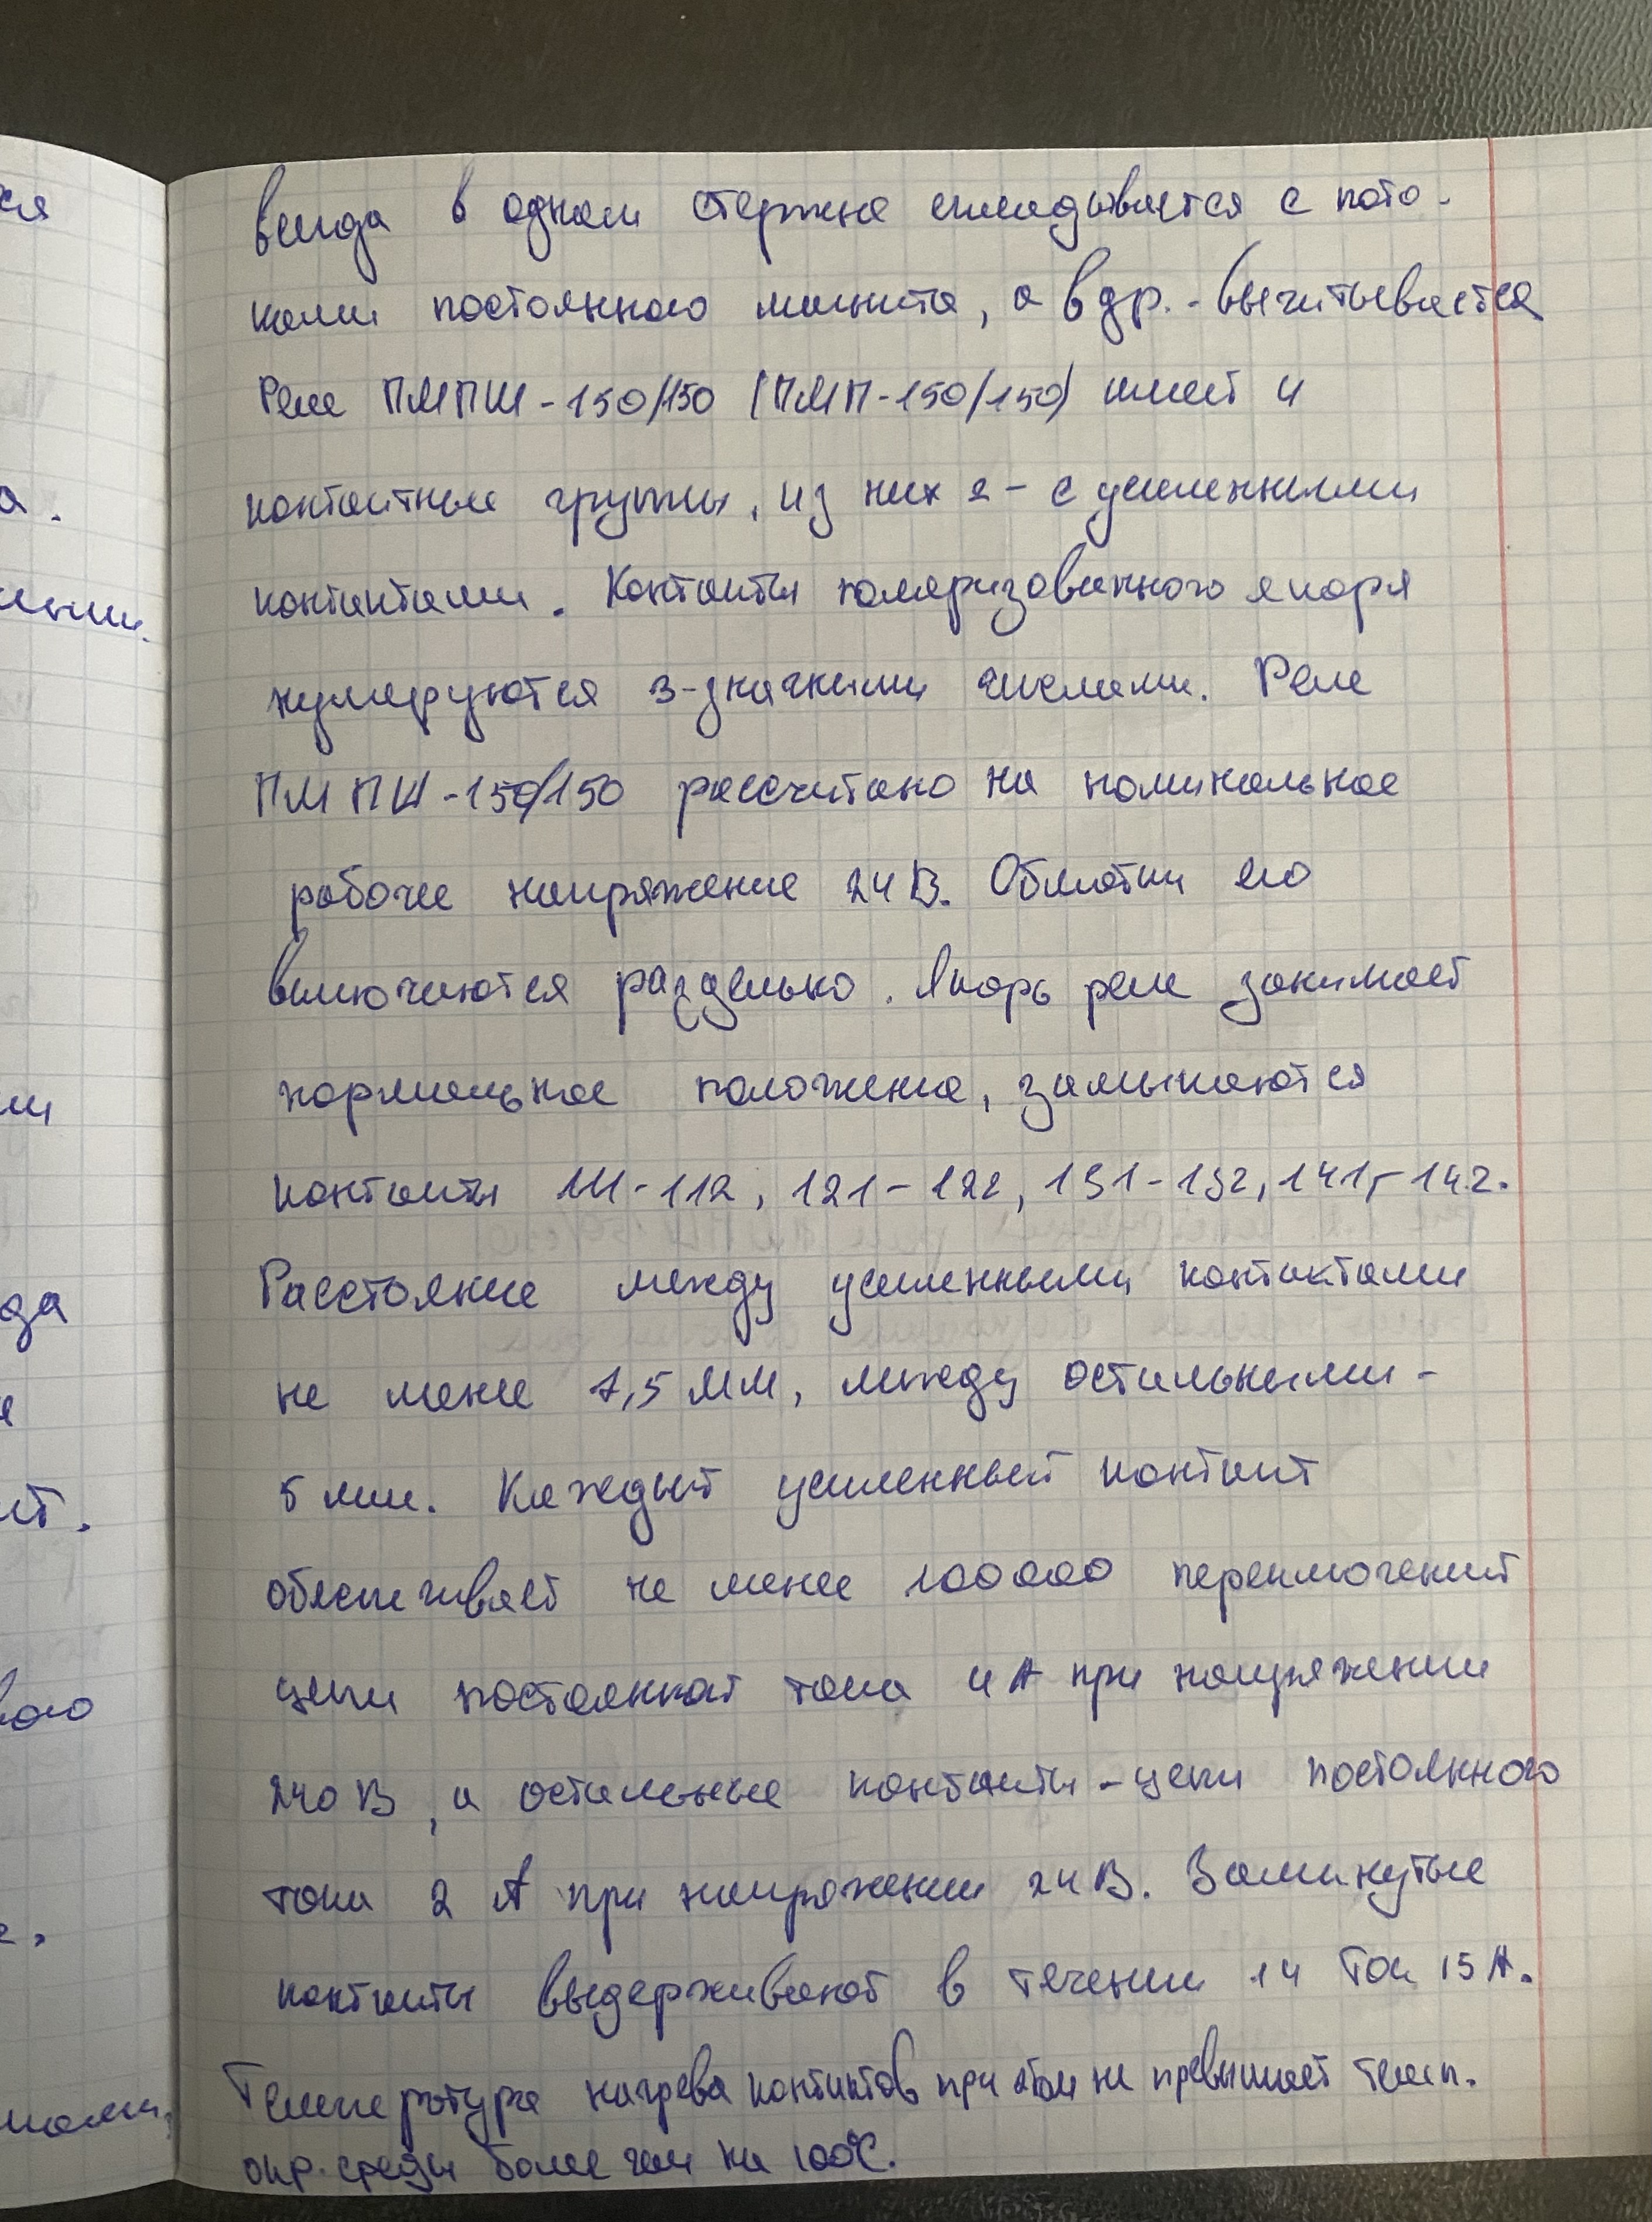 всегда в одном стержне складывается с пото-
ками постоянного магнита, а в др. - вычитывается
Реле ПМПШ-150/150 (ПМП-150/150) имеет 4
контактные группы, из них 2 - с усиленными
контактами. Контакты поляризованного якоря
нумеруются 3-значными числами. Реле
ПМПШ-150/150 рассчитано на номинальное
рабочее напряжение 24 В. Обмотки его
включаются раздельно. Якорь реле занимает
нормальное положение, замыкаются
контакты 111-112, 121-122, 131-132, 141-142.
Расстояние между усиленными контактами
не менее 7,5 мм, между остальными -
5 мм. Каждый усиленный контакт
обеспечивает не менее 100000 переключений
цепи постоянной тока 4 А при напряжении
240 В, а остальные контакты - цепи постоянного
тока 2 А при напряжении 24 В. Замкнутые
контакты выдерживают в течении 1ч ток 15 А.
Температура нагрева контактов при этом не превышает темп.
окр. среды более чем на 100°С.